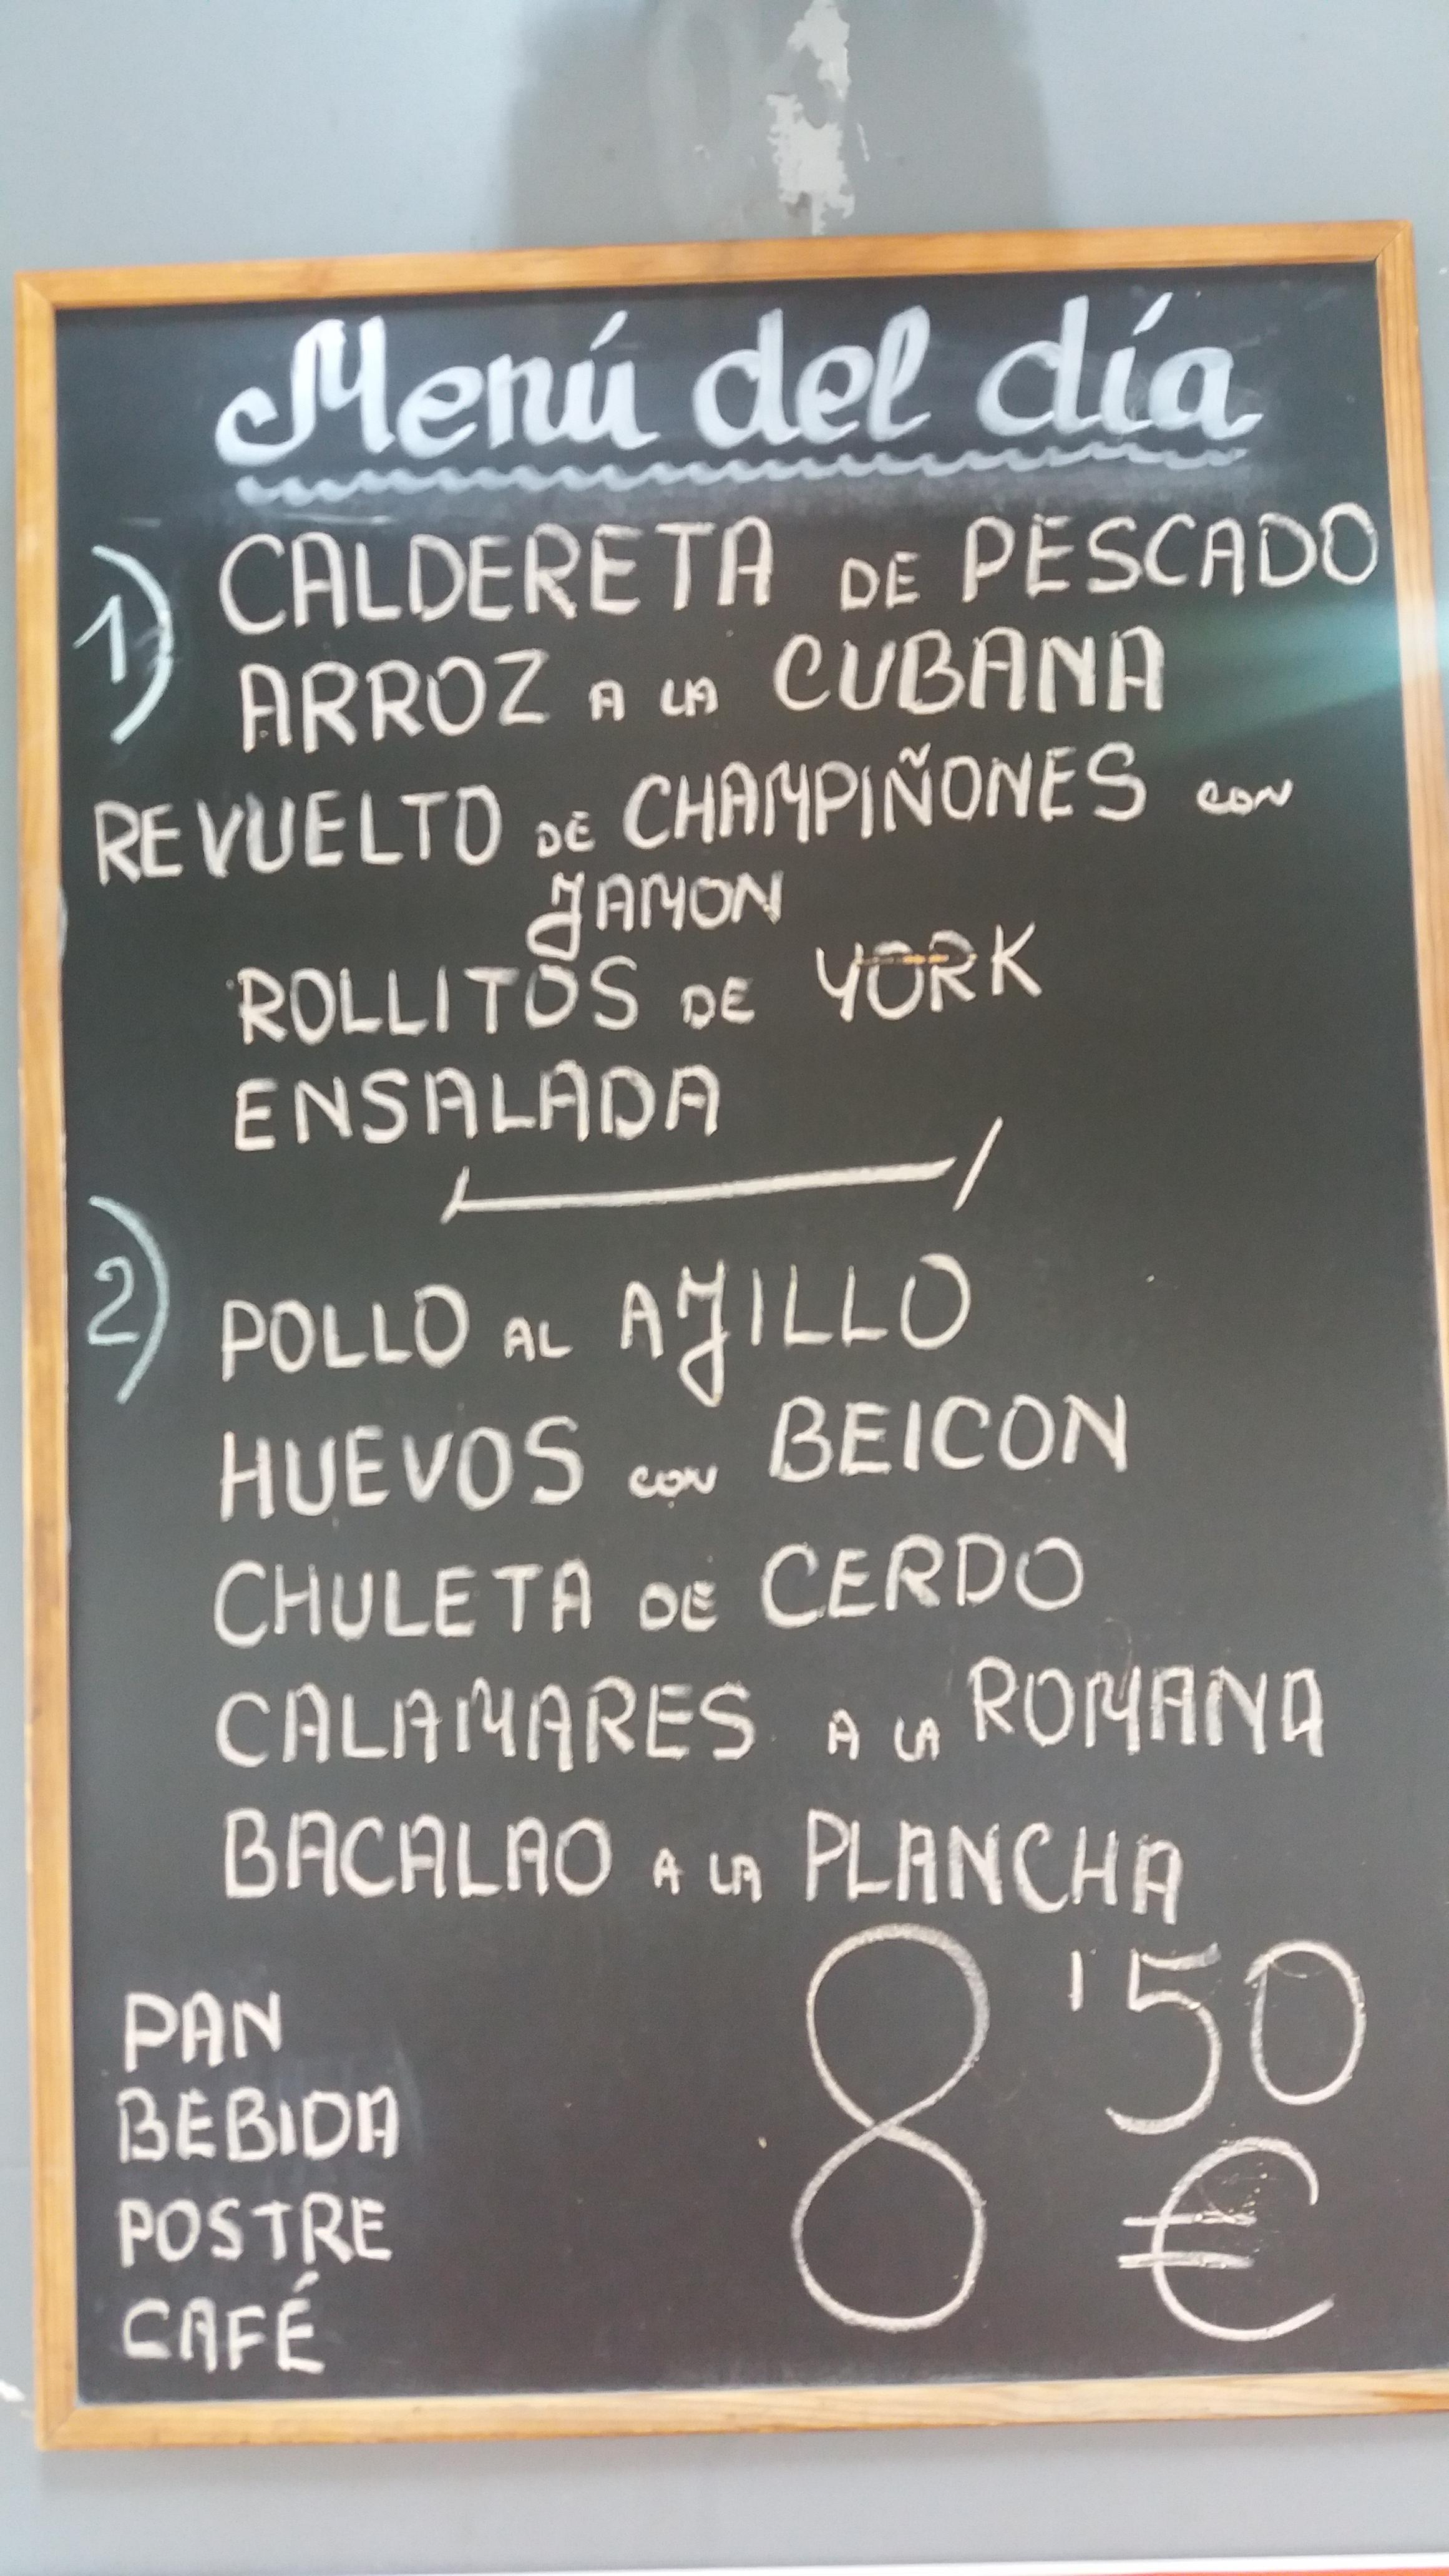 Menú del día
1) CALDERETA DE PESCADO
ARROZ A LA CUBANA
REVUELTO DE CHAMPIÑONES con
JAMON
ROLLITOS DE YORK
ENSALADA
2) POLLO AL AJILLO
HUEVOS con BEICON
CHULETA DE CERDO
CALAMARES A LA ROMANA
BACALAO A LA PLANCHA
PAN
BEBIDA
POSTRE
CAFÉ
8'50
€